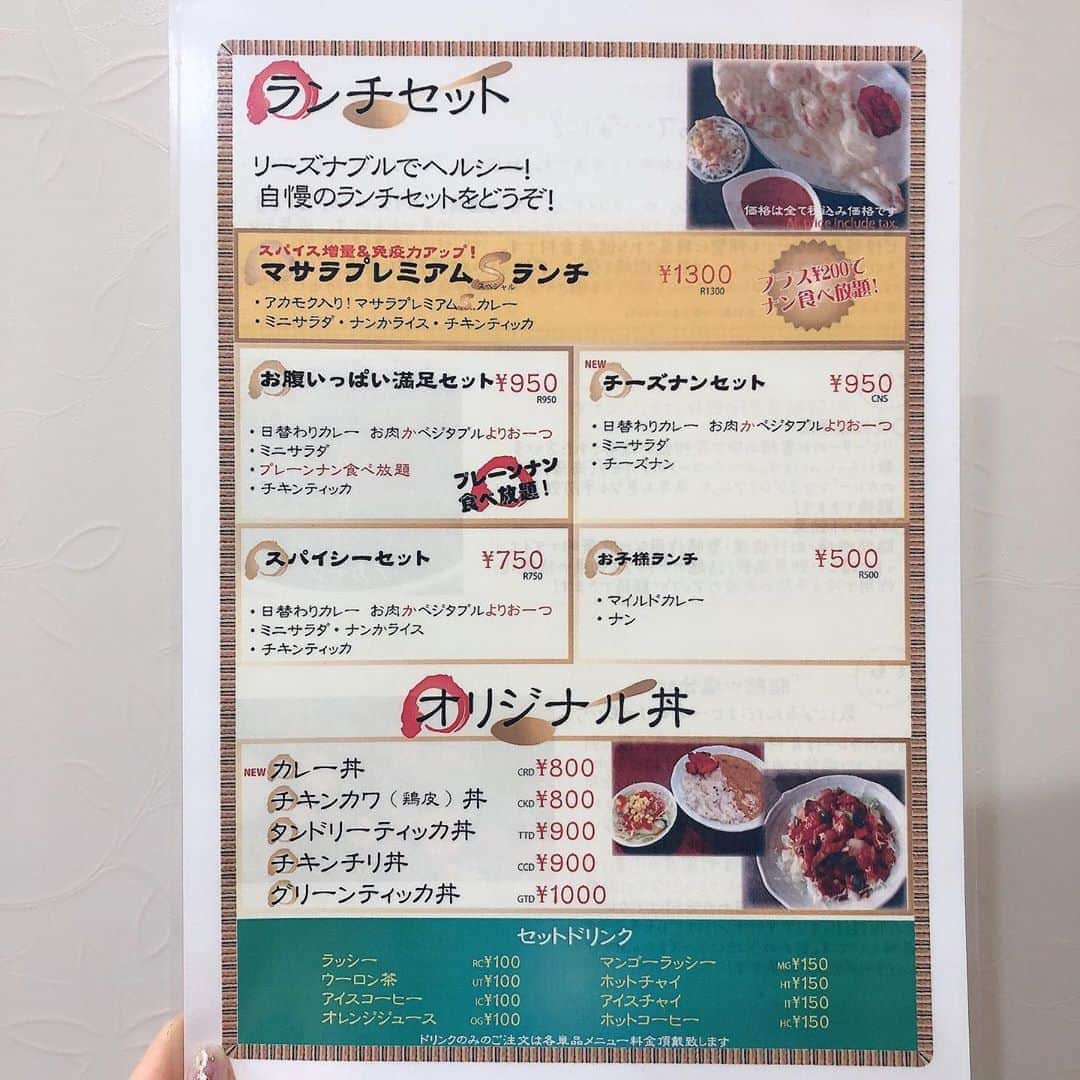 ランチセット
リーズナブルでヘルシー!
自慢のランチセットをどうぞ!
価格は全て税込み価格です
All price include tax.
スパイス増量&免疫力アップ!
マサラプレミアムSランチ
スペシャル
¥1300
R1300
プラス¥200で
ナン食べ放題!
・アカモク入り!マサラプレミアムS.カレー
・ミニサラダ・ナンかライス・チキンティッカ
お腹いっぱい満足セット ¥950
R950
・日替わりカレー お肉かベジタブルよりお一つ
・ミニサラダ
・プレーンナン食べ放題
・チキンティッカ
プレーンナン
食べ放題!
NEW
チーズナンセット ¥950
CNS
・日替わりカレー お肉かベジタブルよりお一つ
・ミニサラダ
・チーズナン
スパイシーセット ¥750
R750
・日替わりカレー お肉かベジタブルよりお一つ
・ミニサラダ・ナンかライス
・チキンティッカ
お子様ランチ ¥500
R500
・マイルドカレー
・ナン
オリジナル丼
NEW カレー丼 CRD ¥800
チキンカワ(鶏皮)丼 CKD ¥800
タンドリーティッカ丼 TTD ¥900
チキンチリ丼 CCD ¥900
グリーンティッカ丼 GTD ¥1000
セットドリンク
ラッシー RC ¥100
ウーロン茶 UT ¥100
アイスコーヒー IC ¥100
オレンジジュース OG ¥100
マンゴーラッシー MG ¥150
ホットチャイ HT ¥150
アイスチャイ IT ¥150
ホットコーヒー HC ¥150
ドリンクのみのご注文は各単品メニュー料金頂戴致します